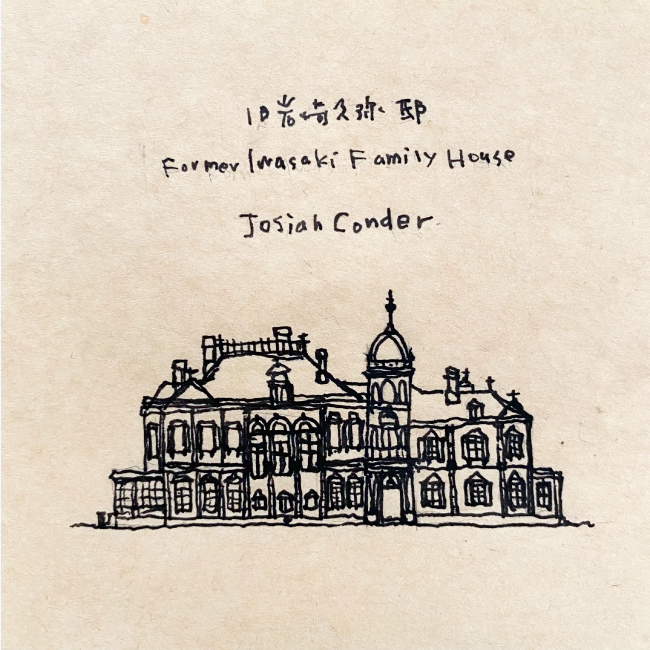 旧岩崎久弥邸
Former Iwasaki Family House
Josiah Conder